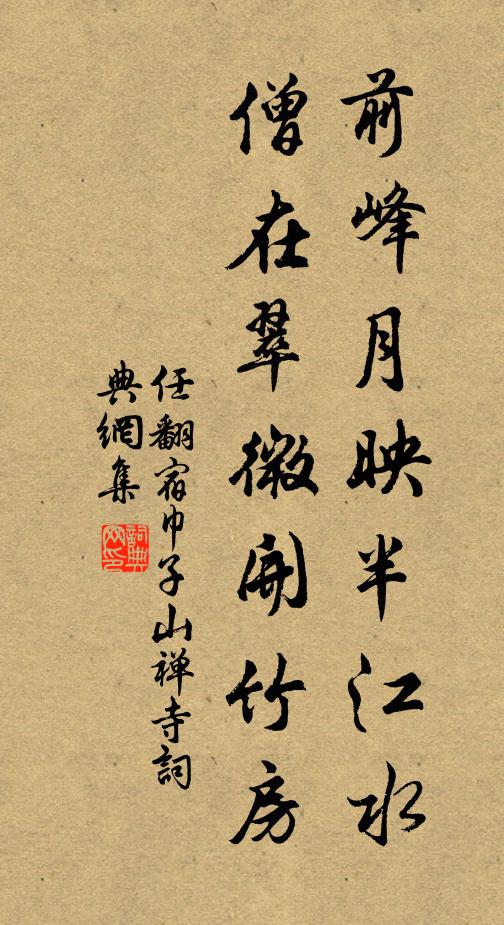 前峰月映半江水
僧在翠微開竹房
任翻宿巾子山禅寺詞
典網集
詞典
网印